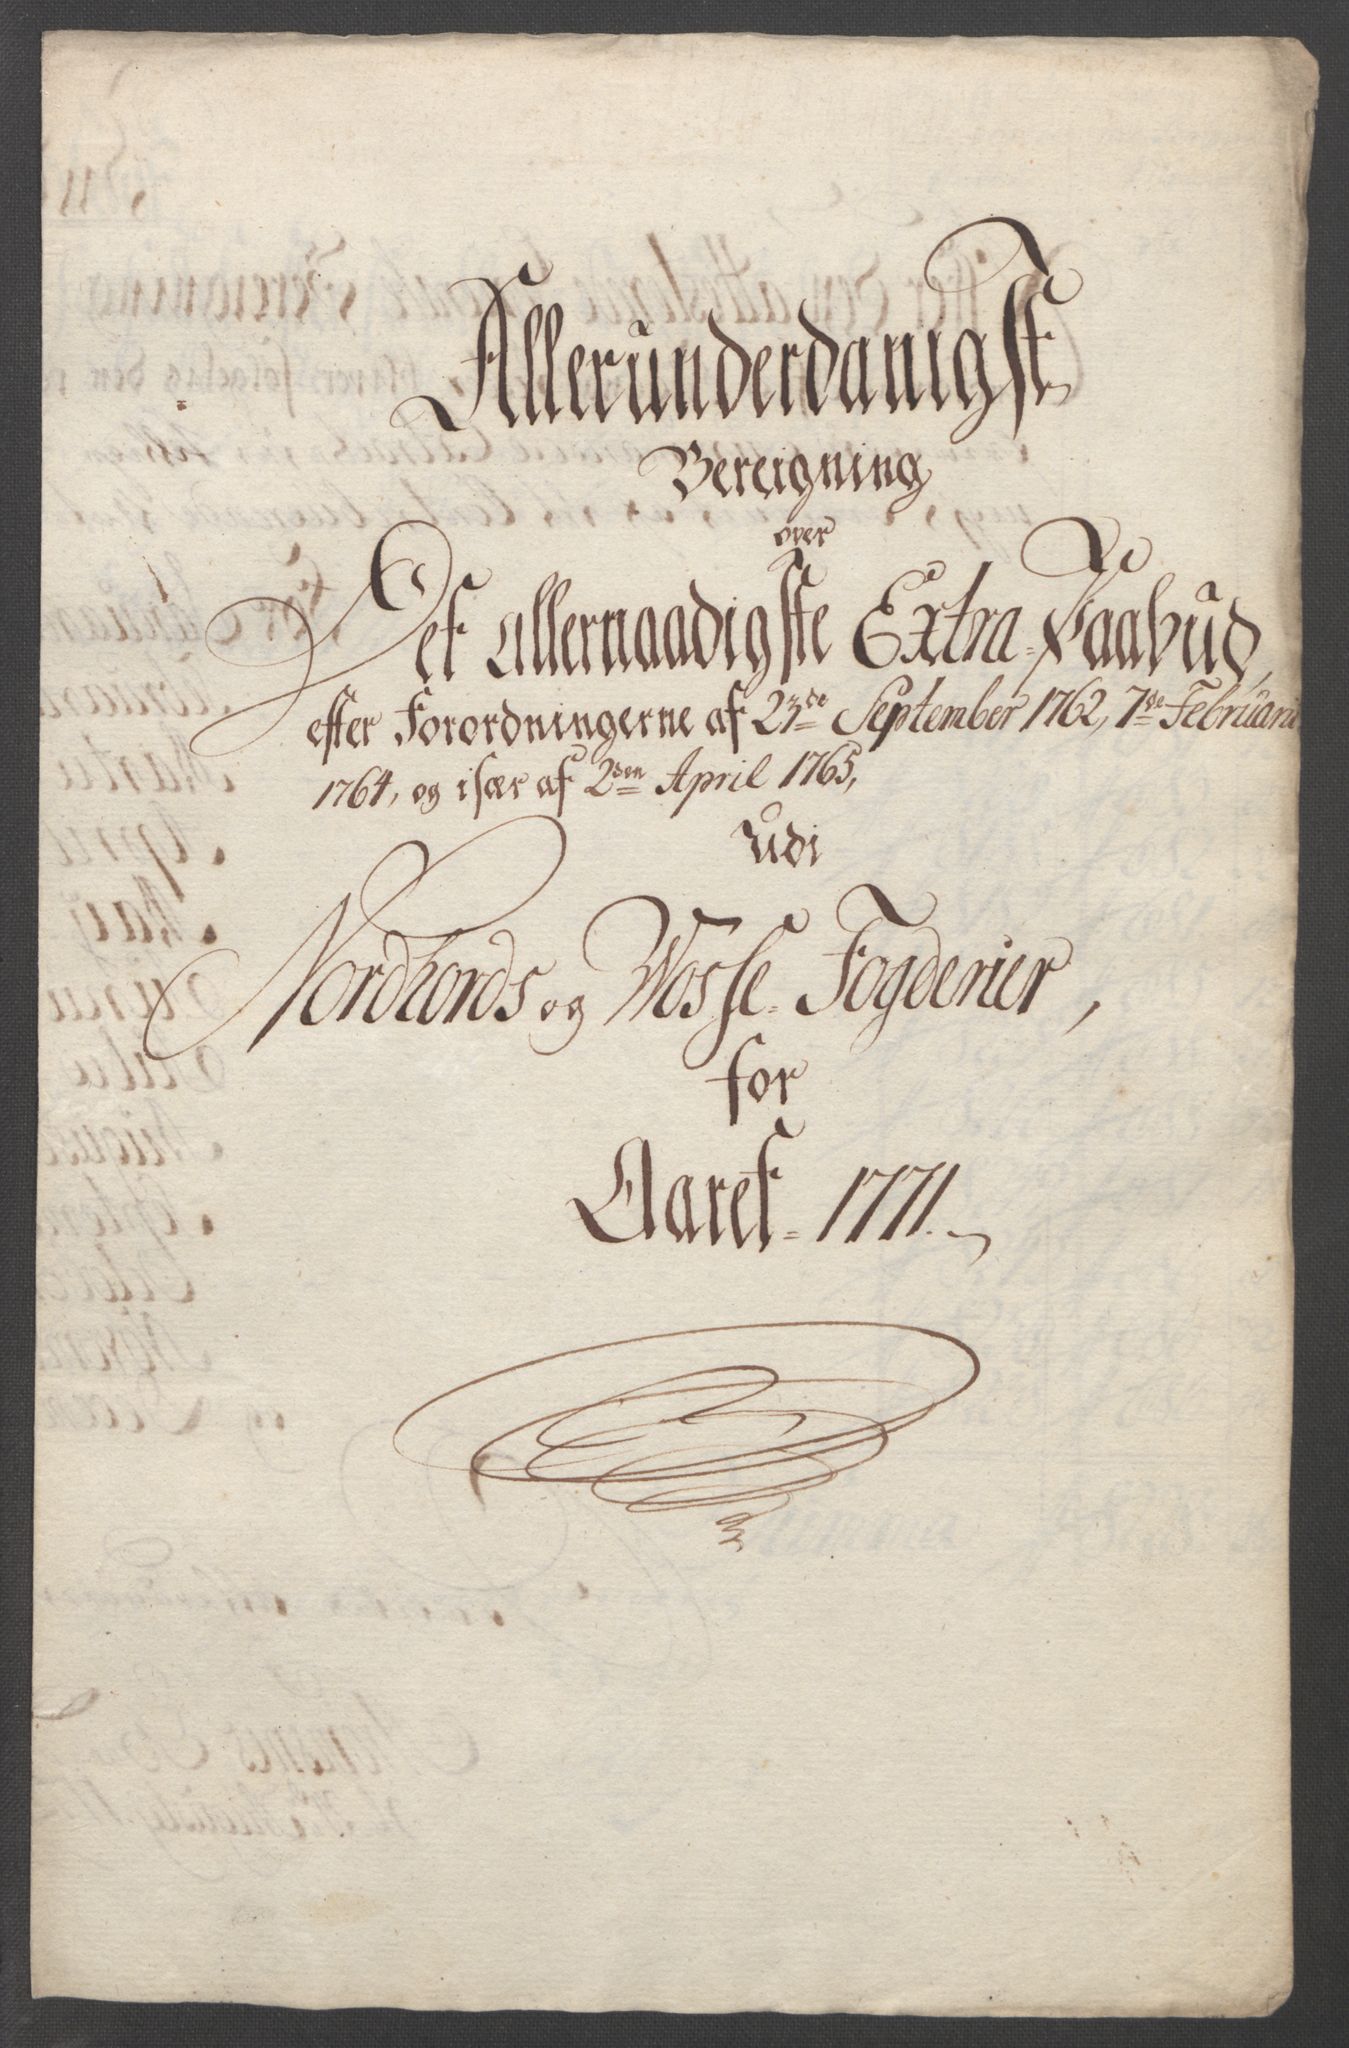 Allerunderdanigst
Bereigning
over
Det allernaadigste Extra-Paabud,
efter Forordningerne af 23de September 1762, 7de Februarii
1764, og især af 2den April 1765,
udi
Nordhords og Wosse-Fogderier,
for
Aaret-1771.